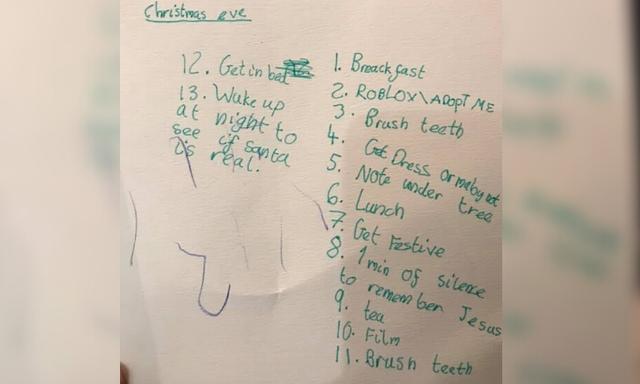 Christmas eve
1. Breackfast
2. ROBLOX\ADOPT ME
3. Brush teeth
4. Get Dress or maby not
5. Note under tree
6. Lunch
7. Get Festive
8. 1 min of silence
to remember Jesus
9. tea
10. Film
11. Brush teeth
12. Get in bed
13. Wake up
at night to
see if santa
is real.